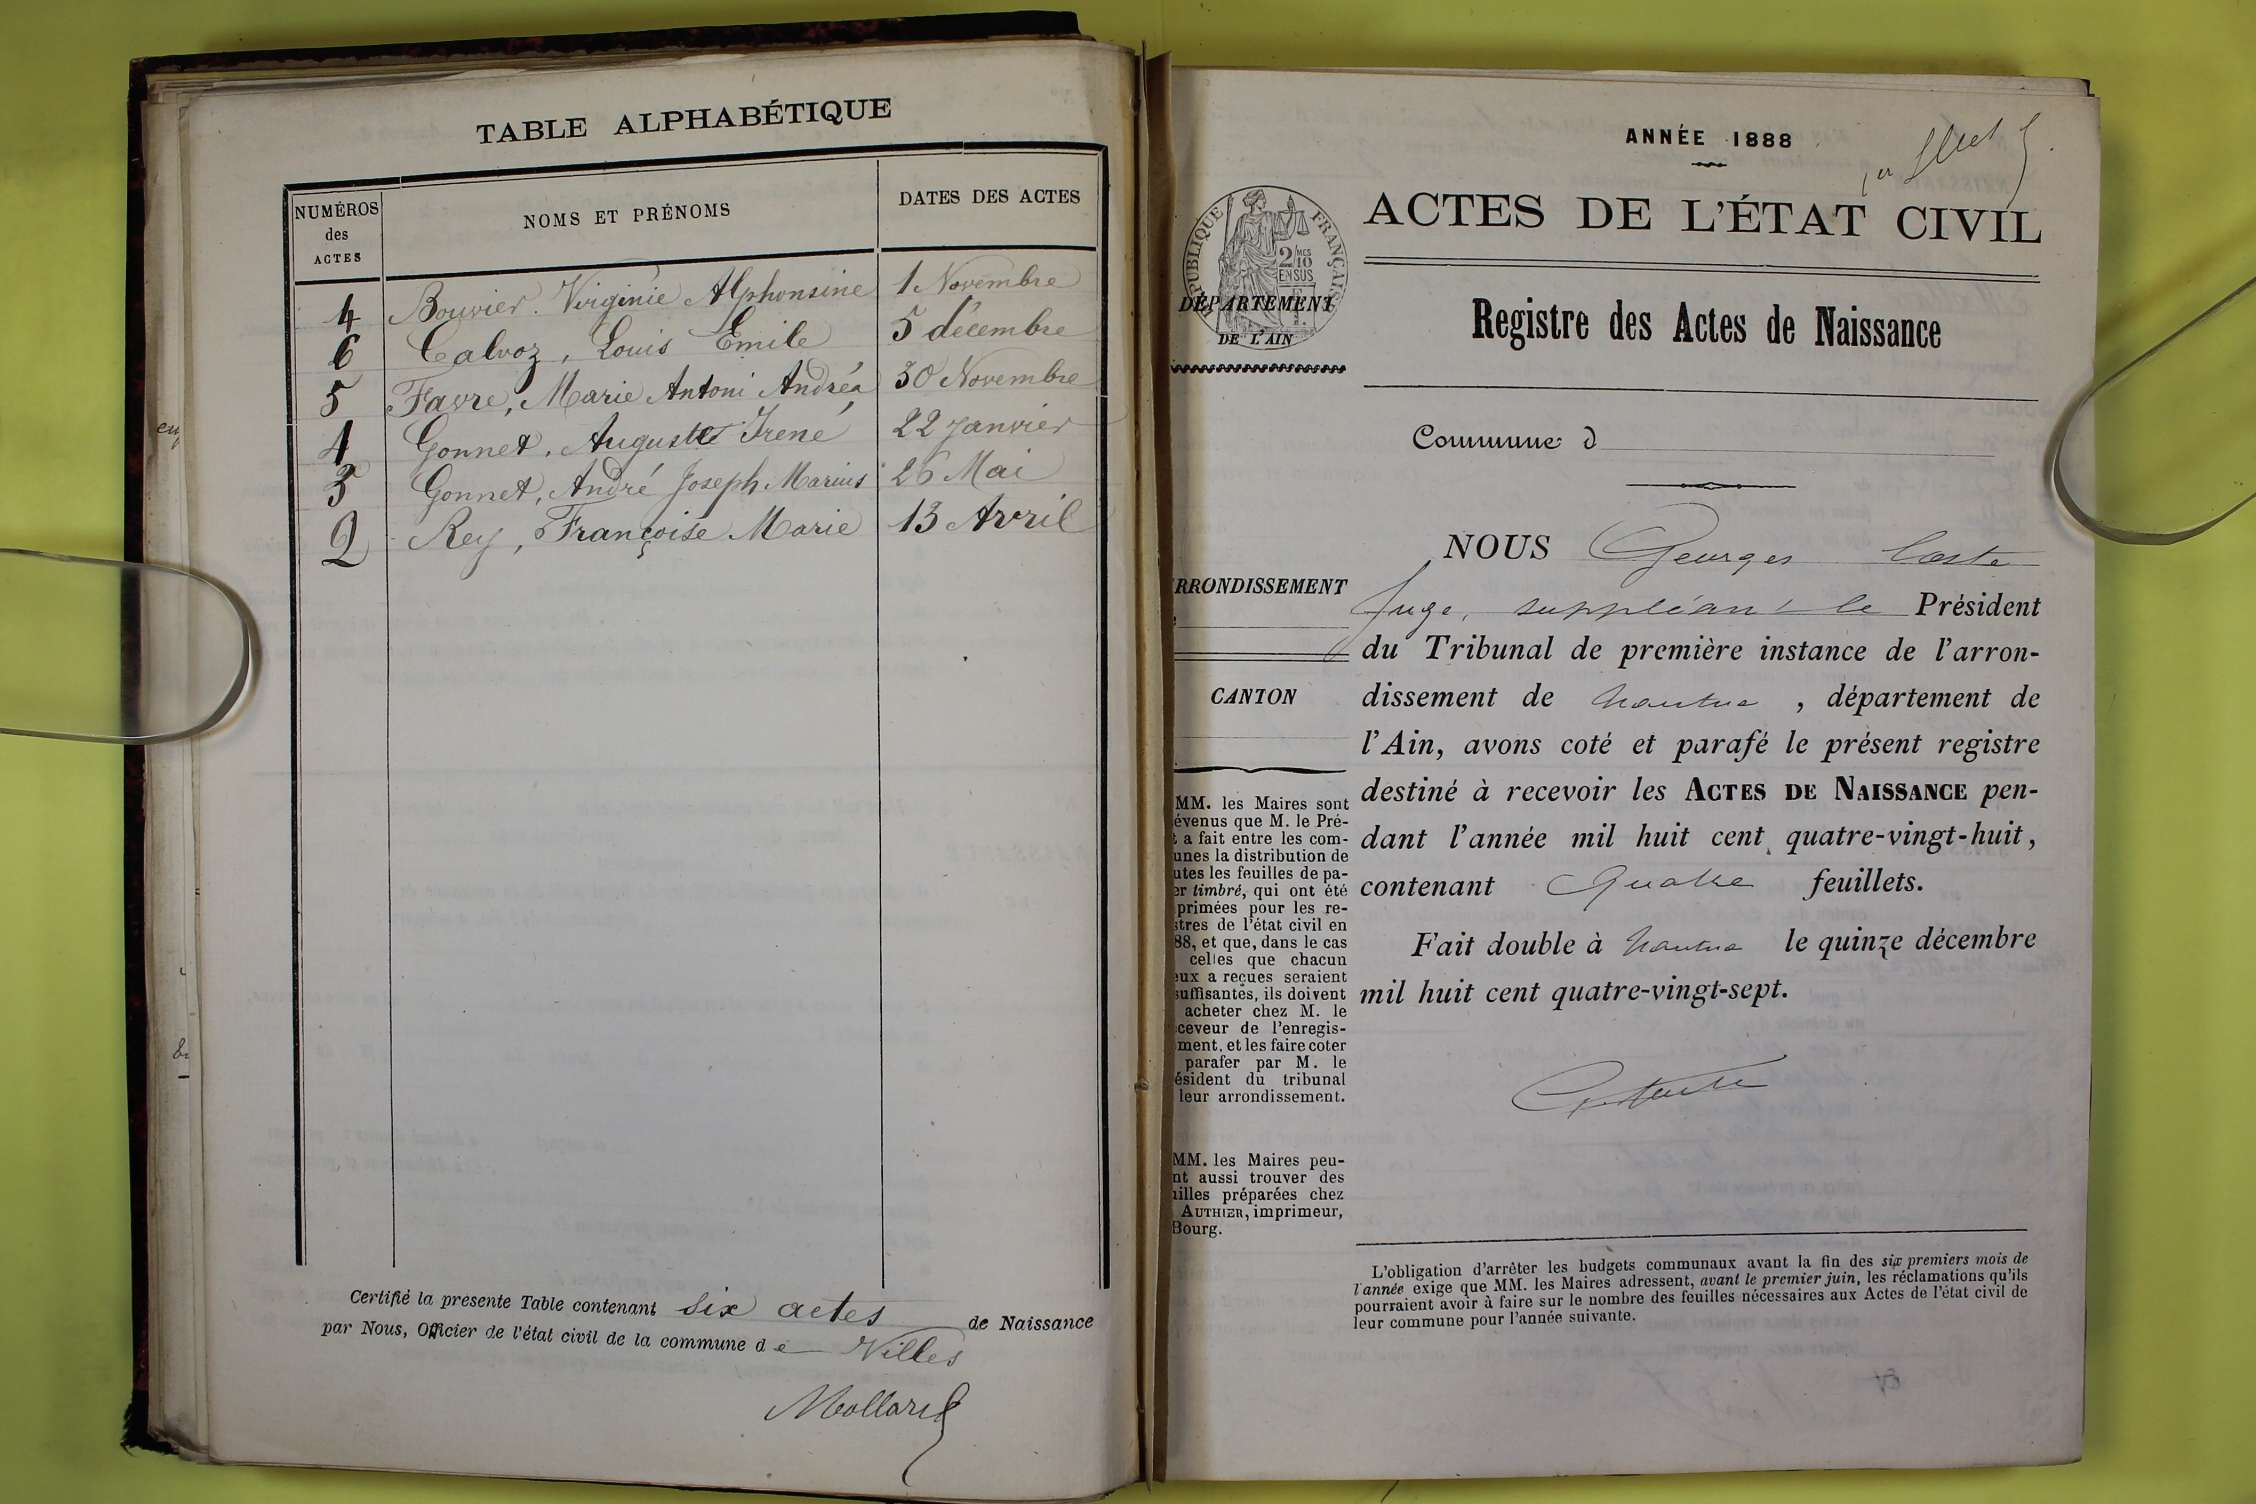 TABLE ALPHABÉTIQUE
NUMÉROS des ACTES
NOMS ET PRÉNOMS
DATES DES ACTES
4 Bouvier. Virginie Alphonsine 1 Novembre
6 Calvoz, Louis Emile 5 décembre
5 Favre, Marie Antoni Andréa 30 Novembre
1 Gonnet, Auguste Irené 22 Janvier
3 Gonnet, André Joseph Marius 26 Mai
2 Rey, Françoise Marie 13 Avril
Certifié la presente Table contenant six actes de Naissance
par Nous, Officier de l'état civil de la commune de Villes
Mollard
ANNÉE 1888
1er
ACTES DE L'ÉTAT CIVIL
RÉPUBLIQUE FRANÇAISE
2 MES
10
EN SUS
DÉPARTEMENT
DE L'AIN
Registre des Actes de Naissance
Commune d
RRONDISSEMENT
CANTON
MM. les Maires sont
évenus que M. le Pré-
t a fait entre les com-
unes la distribution de
utes les feuilles de pa-
er timbré, qui ont été
primées pour les re-
stres de l'état civil en
88, et que, dans le cas
celles que chacun
eux a reçues seraient
suffisantes, ils doivent
acheter chez M. le
ceveur de l'enregis-
ment, et les faire coter
parafer par M. le
ésident du tribunal
leur arrondissement.
MM. les Maires peu-
nt aussi trouver des
uilles préparées chez
AUTHIER, imprimeur,
Bourg.
NOUS Georges Coste
Juge, suppléant le Président
du Tribunal de première instance de l'arron-
dissement de Nantua, département de
l'Ain, avons coté et parafé le présent registre
destiné à recevoir les ACTES DE NAISSANCE pen-
dant l'année mil huit cent quatre-vingt-huit,
contenant Quatre feuillets.
Fait double à Nantua le quinze décembre
mil huit cent quatre-vingt-sept.
L'obligation d'arrêter les budgets communaux avant la fin des six premiers mois de
l'année exige que MM. les Maires adressent, avant le premier juin, les réclamations qu'ils
pourraient avoir à faire sur le nombre des feuilles nécessaires aux Actes de l'état civil de
leur commune pour l'année suivante.